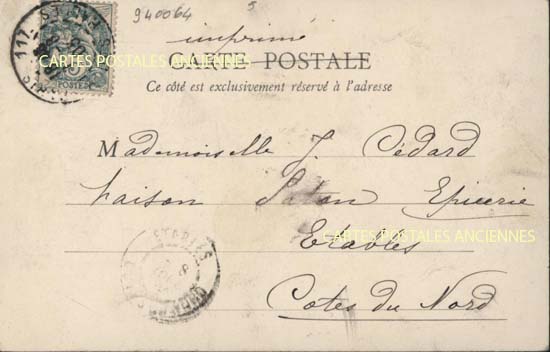 940064
5
imprimé
CARTE POSTALE
CARTES POSTALES ANCIENNES
Ce côté est exclusivement réservé à l'adresse
POSTES
Mademoiselle J. Cédard
Maison Epicerie
CARTES POSTALES ANCIENNES
Etables
Côtes du Nord